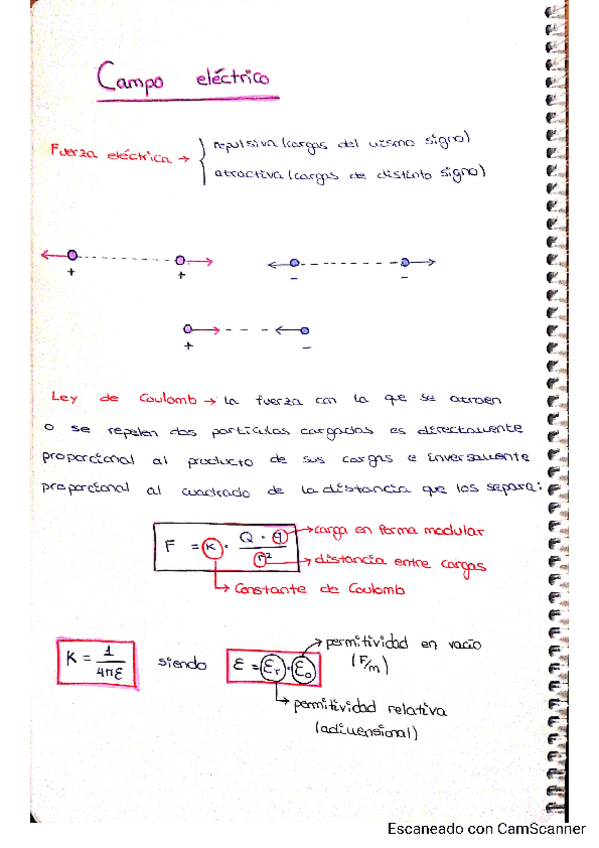 Campo eléctrico
Fuerza eléctrica → { repulsiva (cargas del mismo signo)
atractiva (cargas de distinto signo)
+ + - -
+ -
Ley de Coulomb → la fuerza con la que se atraen
o se repelen dos partículas cargadas es directamente
proporcional al producto de sus cargas e inversamente
proporcional al cuadrado de la distancia que los separa:
F = K · Q · q / r²
→ carga en forma modular
→ distancia entre cargas
→ Constante de Coulomb
K = 1 / 4πε siendo ε = εr · ε0
→ permitividad en vacío
(F/m)
→ permitividad relativa
(adimensional)
Escaneado con CamScanner